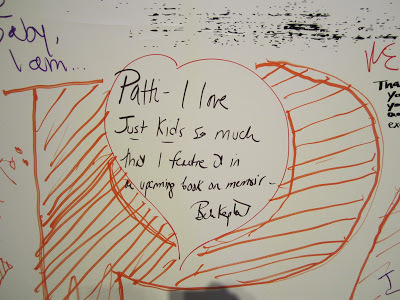 Baby,
I am...
Patti - I love
Just Kids so much
that I feature it in
upcoming book on memoir -
WE
Tha
yo
yo
I